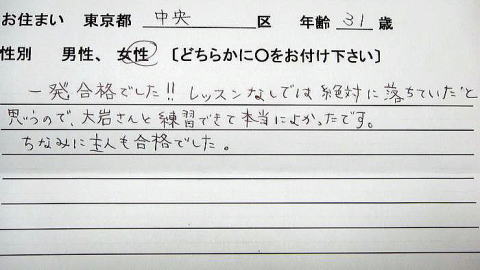 お住まい 東京都 中央 区 年齢 31 歳
性別 男性、女性 〔どちらかに〇をお付け下さい〕
一発合格でした!! レッスンなしでは絶対に落ちていたと
思うので、大岩さんと練習できて本当によかったです。
ちなみに主人も合格でした。